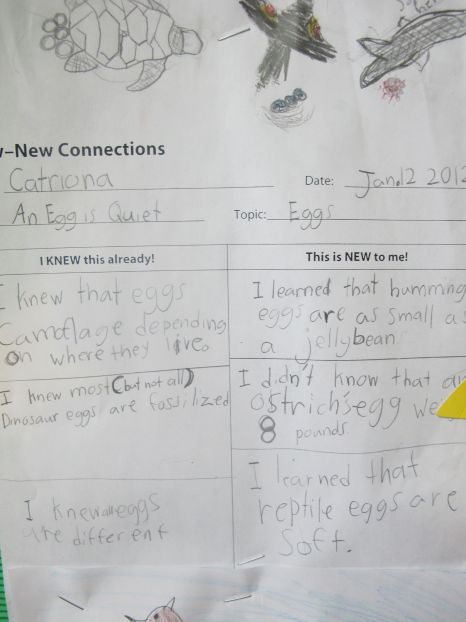 –New Connections
Catriona Date: Jan.12 2012
An Egg is Quiet Topic: Eggs
I KNEW this already!
I knew that eggs
Camoflage depending
on where they live.
I knew most (but not all)
Dinosaur eggs are fossilized
I knew all eggs
are different
This is NEW to me!
I learned that humming
eggs are as small as
a jellybean.
I didn't know that an
ostrich's egg we
8 pounds.
I learned that
reptile eggs are
Soft.